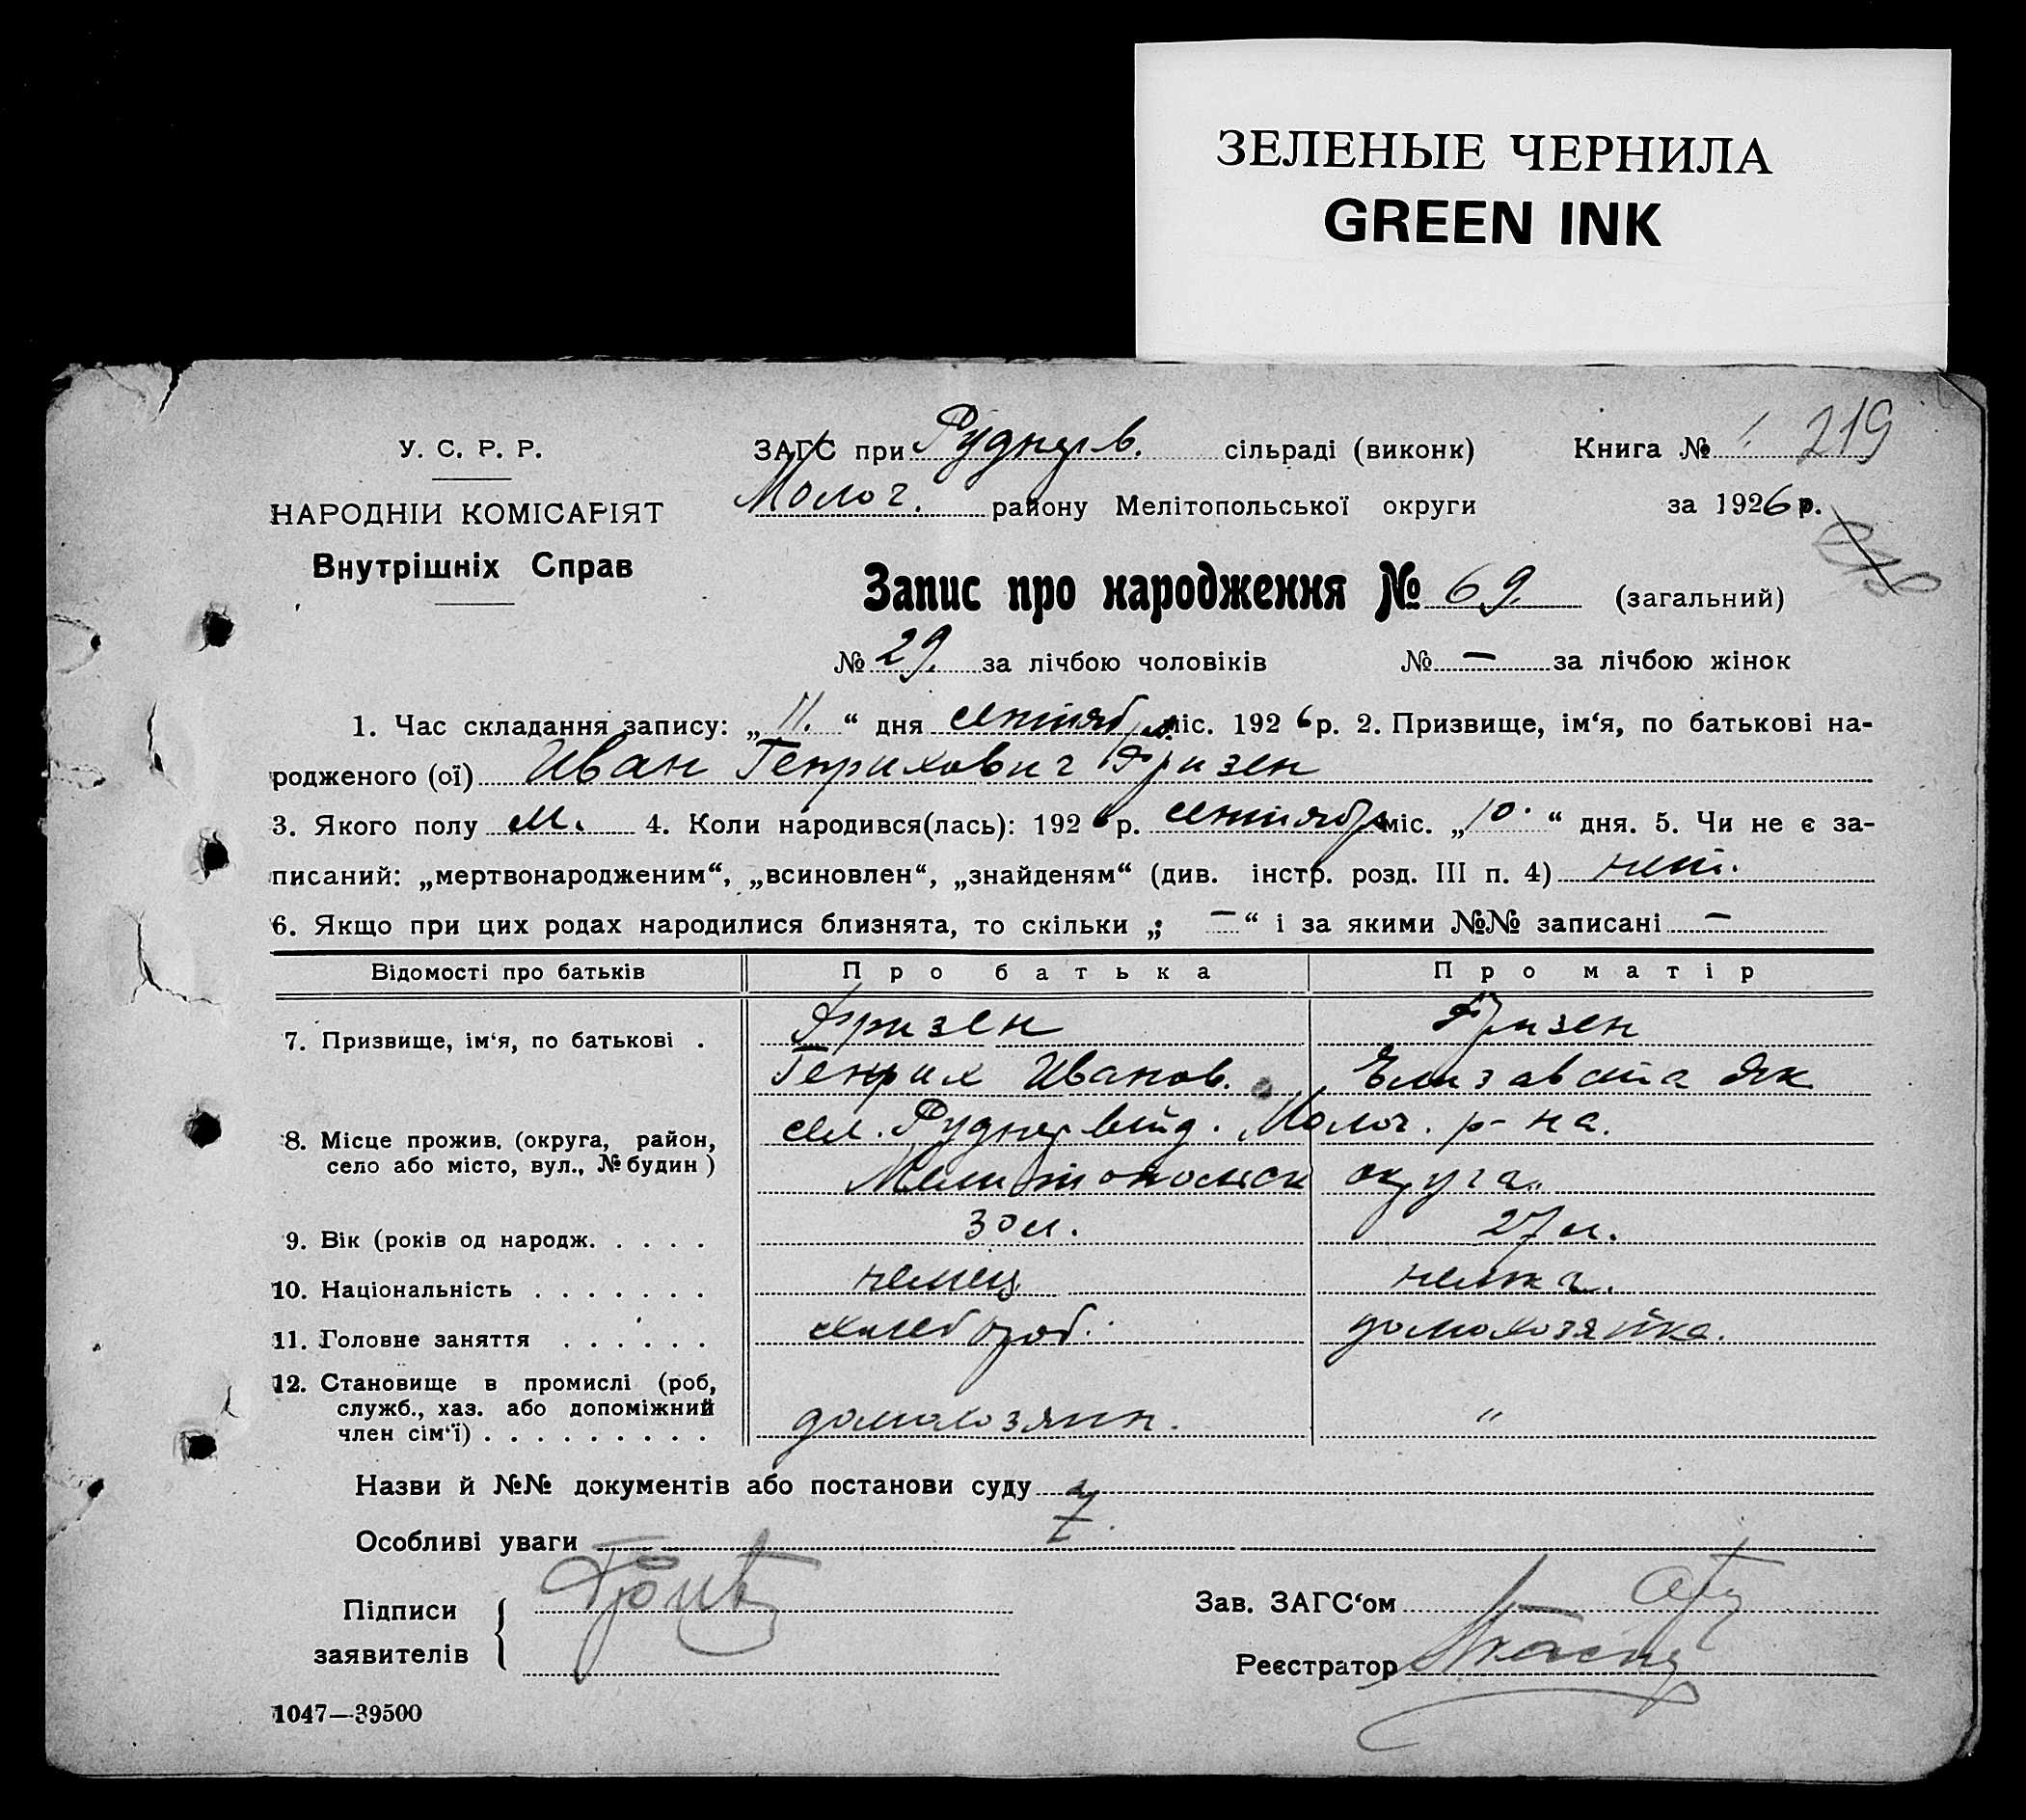 ЗЕЛЕНЫЕ ЧЕРНИЛА
GREEN INK
У. С. Р. Р.
НАРОДНІЙ КОМІСАРІЯТ
Внутрішніх Справ
ЗАГС при Руднерв. сільраді (виконк) Книга № 219
Молоч. району Мелітопольської округи за 1926 р.
Запис про народження № 69. (загальний)
№ 29. за лічбою чоловіків № — за лічбою жінок
1. Час складання запису: „11.“ дня сентября міс. 1926 р. 2. Призвище, ім‘я, по батькові на-
родженого (ої) Иван Генрихович Фризен
3. Якого полу м. 4. Коли народився(лась): 1926 р. сентября міс. „10.“ дня. 5. Чи не є за-
писаний: „мертвонародженим“, „всиновлен“, „знайденям“ (див. інстр. розд. III п. 4) нет.
6. Якщо при цих родах народилися близнята, то скільки „ — “ і за якими №№ записані —
Відомості про батьків Про батька Про матір
7. Призвище, ім‘я, по батькові . Фризен Фризен
Генрих Иванов. Елизавета Як
8. Місце прожив. (округа, район, село або місто, вул., № будин) сел. Руднервейд. Молоч. р-на.
Мелитопольск округа.
9. Вік (років од народж. . . . . 30 л. 27 л.
10. Національність . . . . . . . немец немка.
11. Головне заняття . . . . . . хлебороб. домохозяйка.
12. Становище в промислі (роб,
служб., хаз. або допоміжний
член сім‘ї) . . . . . . . . . домохозяин. "
Назви й №№ документів або постанови суду
Особливі уваги
Підписи
заявителів
Зав. ЗАГС‘ом
Реєстратор
1047—39500